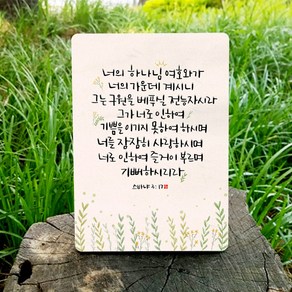 너의 하나님 여호와가
너의 가운데 계시니
그는 구원을 베푸실 전능자시라
그가 너로 인하여
기쁨을 이기지 못하여 하시며
너를 잠잠히 사랑하시며
너로 인하여 즐거이 부르며
기뻐하시리라
스바냐 3:17